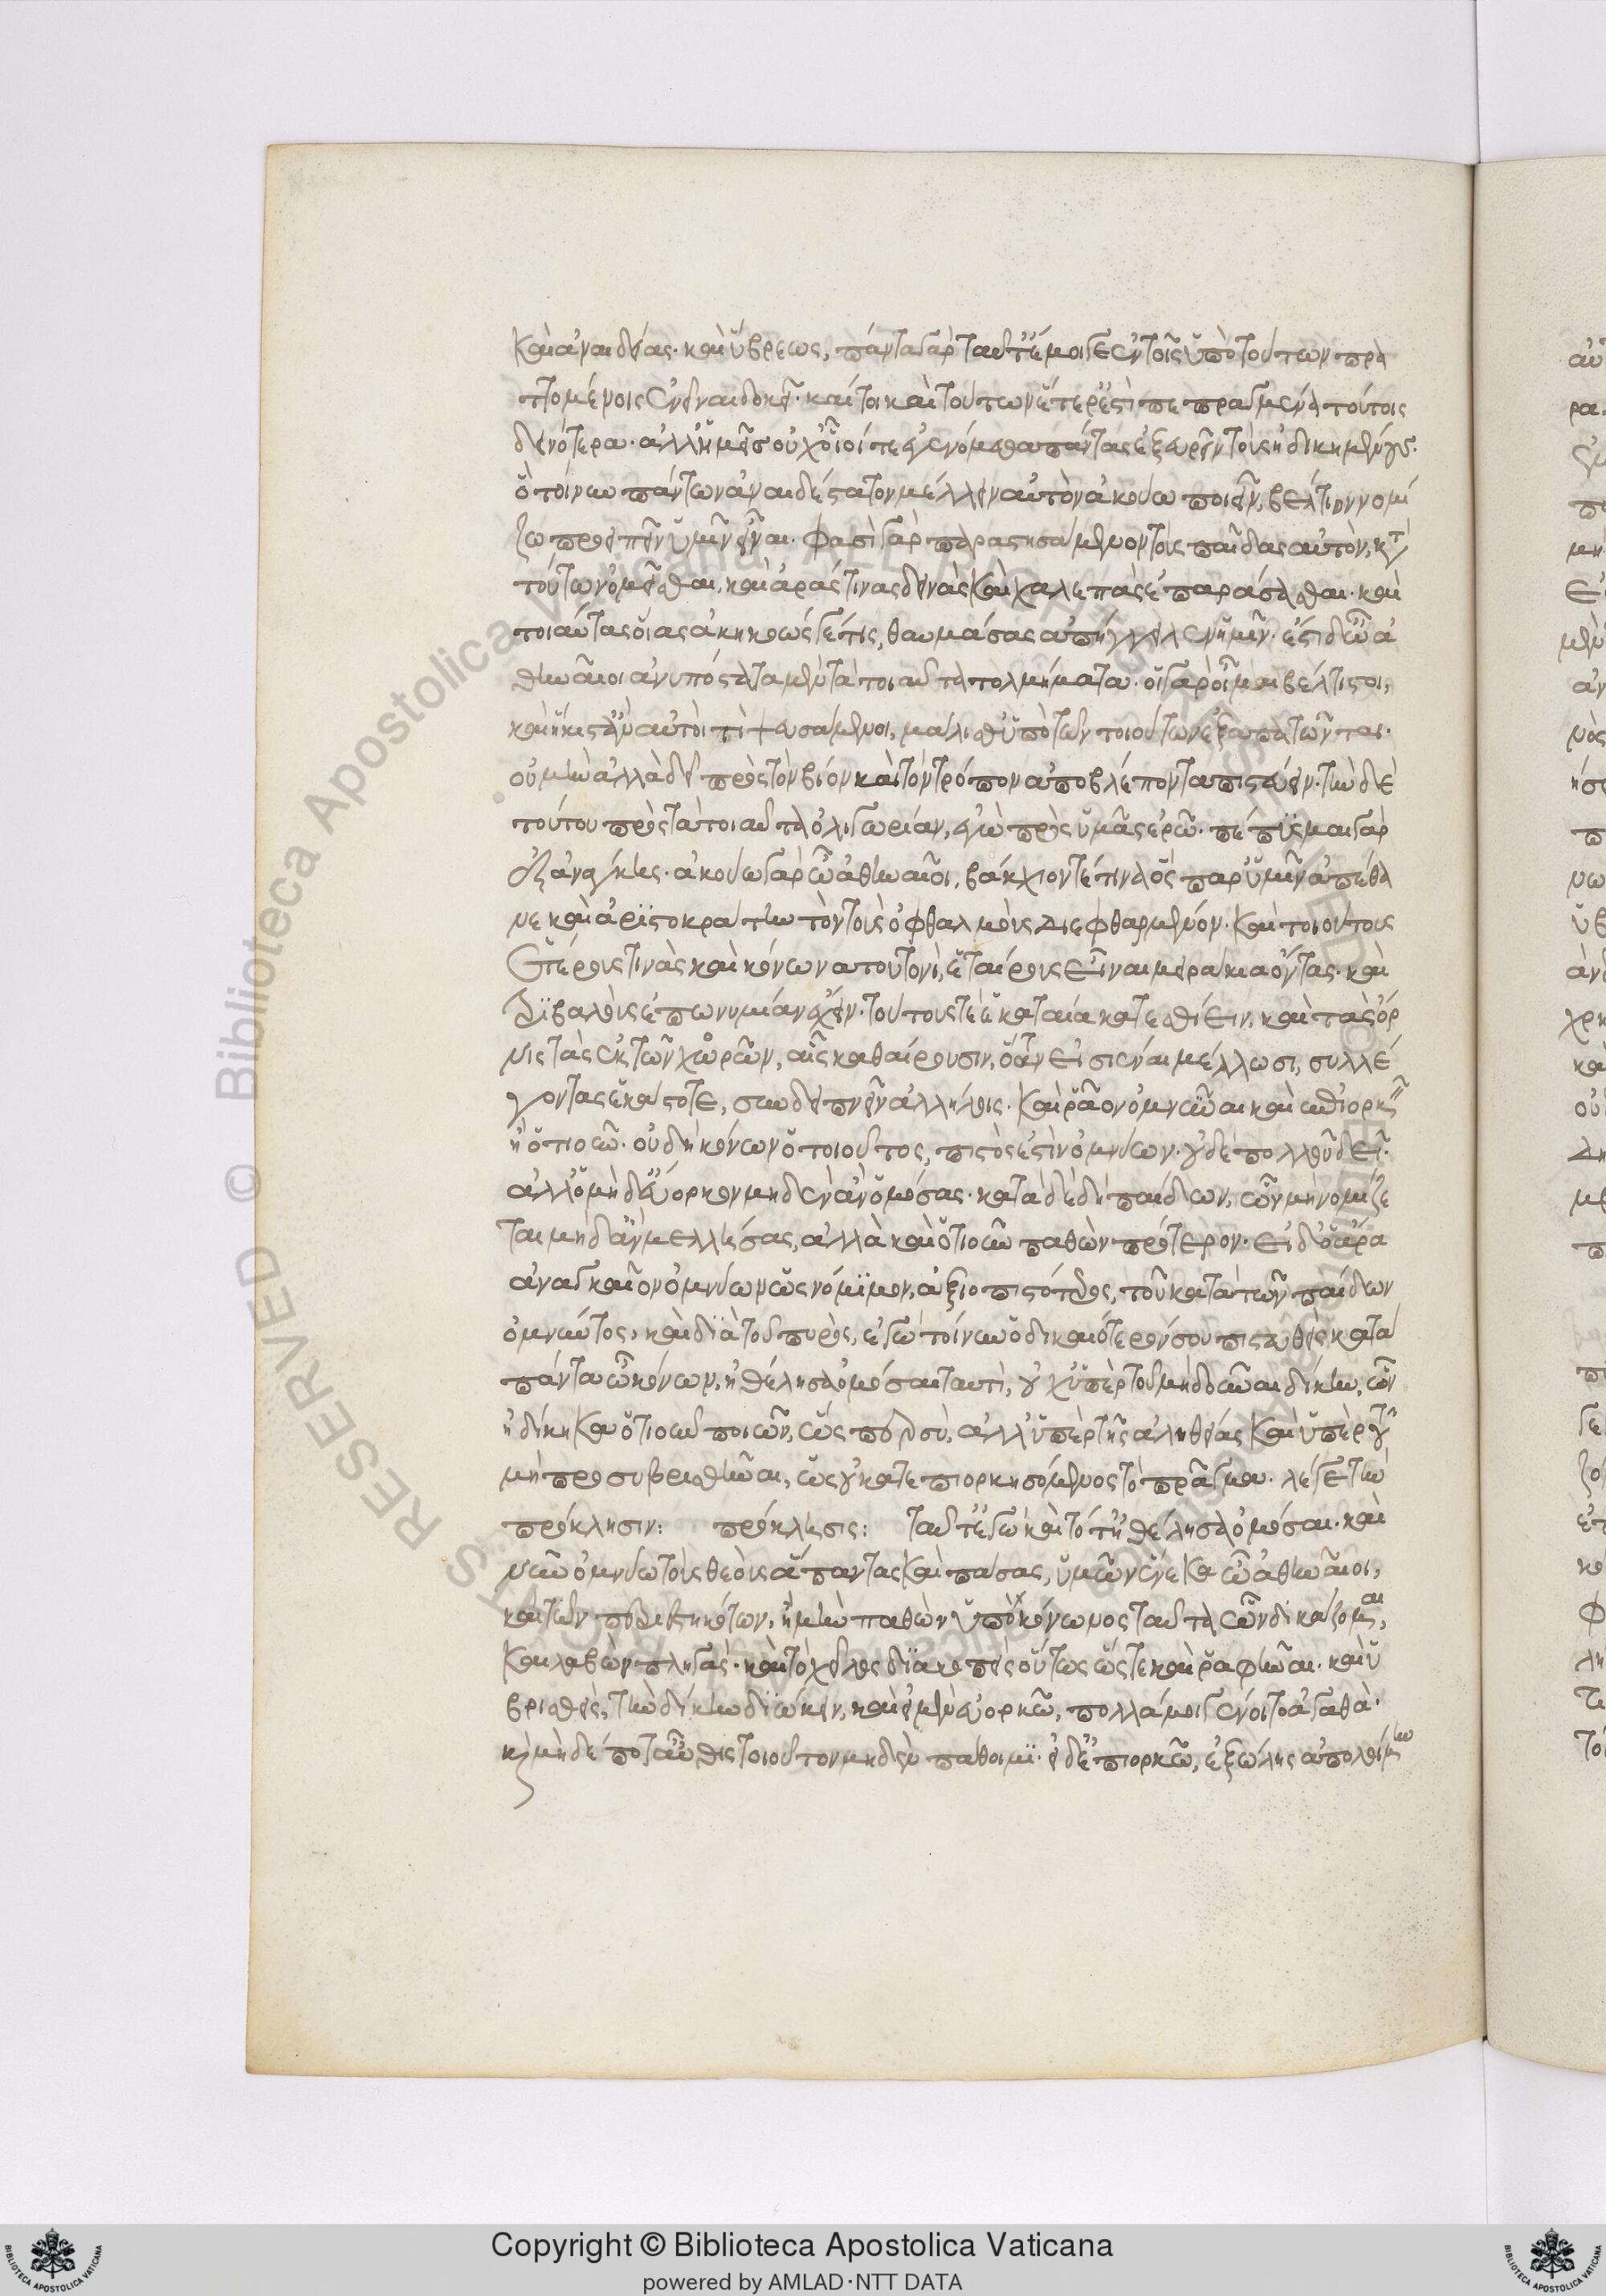 καὶ ἀναιδείας· καὶ ὕβρεως, πάντα γὰρ ταῦτ' ἔμοιγε ἐν τοῖς ὑπὸ τούτων πρα
ττομένοις ἐνεῖναι δοκεῖ· καίτοι καὶ τούτων ἕτερ' ἐστὶ πεπραγμένα τούτοις
δεινότερα· ἀλλ' ἡμεῖς οὐχ οἷοί τε ἐγενόμεθα πάντας ἐξευρεῖν τοὺς ἠδικημένους·
ὃ τοίνυν πάντων ἀναιδέστατον μέλλειν αὐτὸν ἀκούω ποιεῖν, βέλτιον νομί
ζω προειπεῖν ὑμῖν εἶναι· φασὶ γὰρ παραστησάμενον τοὺς παῖδας αὐτὸν, κατὰ
τούτων ὀμεῖσθαι, καὶ ἀράς τινας δεινὰς καὶ χαλεπὰς ἐπαράσασθαι· καὶ
τοιαύτας οἵας ἀκηκοώς γέ τις, θαυμάσας ἀπήγγειλεν ἡμῖν· ἔστι δ' ὦ ἄ
θηναῖοι ἀνυπόστατα μὲν τὰ τοιαῦτα τολμήματα· οἱ γὰρ οἶμαι βέλτιστοι,
καὶ ἥκιστ' ἂν αὐτοί τι ψευσάμενοι, μάλισθ' ὑπὸ τῶν τοιούτων ἐξαπατῶνται·
οὐ μὴν ἀλλὰ δεῖ πρὸς τὸν βίον καὶ τὸν τρόπον ἀποβλέποντα πιστεύειν· τὴν δὲ
τούτου πρὸς τὰ τοιαῦτα ὀλιγωρίαν, ἐγὼ πρὸς ὑμᾶς ἐρῶ· πέπυσμαι γὰρ
ἐξ ἀνάγκης· ἀκούω γὰρ ὦ ἀθηναῖοι, βάκχιόν τέ τινα ὃς παρ' ὑμῖν ἀπέθα
νε καὶ ἀριστοκράτην τὸν τοὺς ὀφθαλμοὺς διεφθαρμένον· καὶ τοιούτους
ἑτέρους τινὰς καὶ κόνωνα τουτονὶ, ἑταίρους εἶναι μειράκια ὄντας· καὶ
τριβαλοὺς ἐπωνυμίαν ἔχειν· τούτους τά τε ἑκαταῖα κατεσθίειν, καὶ τὰς ὄρ
χεις τὰς ἐκ τῶν χοίρων, αἷς καθαίρουσιν, ὅταν εἰσιέναι μέλλωσι, συλλέ
γοντας ἑκάστοτε, συνδειπνεῖν ἀλλήλοις· καὶ ῥᾷον ὀμνύναι καὶ ἐπιορκεῖν
ἢ ὁτιοῦν· οὐ δὴ κόνων ὁ τοιοῦτος, πιστός ἐστιν ὀμνύων· οὐδὲ πολλοῦ δεῖ·
ἀλλ' ὁ μηδ' εὔορκον μηδὲν ἂν ὀμόσας· κατὰ δὲ δὴ παίδων, ὧν μὴ νομίζε
ται μηδ' ἂν μελλήσας, ἀλλὰ κἂν ὁτιοῦν παθὼν πρότερον· εἰ δ' ἄρα
ἀναγκαῖον ὀμνύων ὡς νόμιμον, ἀξιοπιστότερος, τοῦ κατὰ τῶν παίδων
ὀμνύοντος, καὶ διὰ τοῦ πυρός, ἐγὼ τοίνυν ὁ δικαιότερόν σου πιστευθεὶς κατὰ
πάντα ὦ κόνων, ἠθέλησα ὀμόσαι ταυτὶ, οὐχ ὑπὲρ τοῦ μὴ δοῦναι δίκην, ὧν
ἠδίκηκα ὁτιοῦν ποιῶν, ὥσπερ σύ, ἀλλ' ὑπὲρ τῆς ἀληθείας καὶ ὑπὲρ τοῦ
μὴ προσυβρισθῆναι, ὡς οὐ κατεπιορκησόμενος τὸ πρᾶγμα· λέγε τὴν
πρόκλησιν: πρόκλησις: ταῦτ' ἐγὼ καὶ τότ' ἠθέλησα ὀμόσαι· καὶ
νῦν ὀμνύω τοὺς θεοὺς ἅπαντας καὶ πάσας, ὑμῶν ἕνεκα ὦ ἀθηναῖοι,
καὶ τῶν περιεστηκότων, ἦ μὴν παθὼν ὑπὸ κόνωνος ταῦτα ὧν δικάζομαι,
καὶ λαβὼν πληγάς· καὶ τὸ χεῖλος διακοπεὶς οὕτως ὥστε καὶ ῥαφῆναι· καὶ ὑ
βρισθεὶς, τὴν δίκην διώκειν, καὶ εἰ μὲν εὐορκῶ, πολλά μοι γένοιτο ἀγαθά·
καὶ μηδέποτ' αὖθις τοιοῦτον μηδὲν πάθοιμι· εἰ δ' ἐπιορκῶ, ἐξώλης ἀπολοίμην